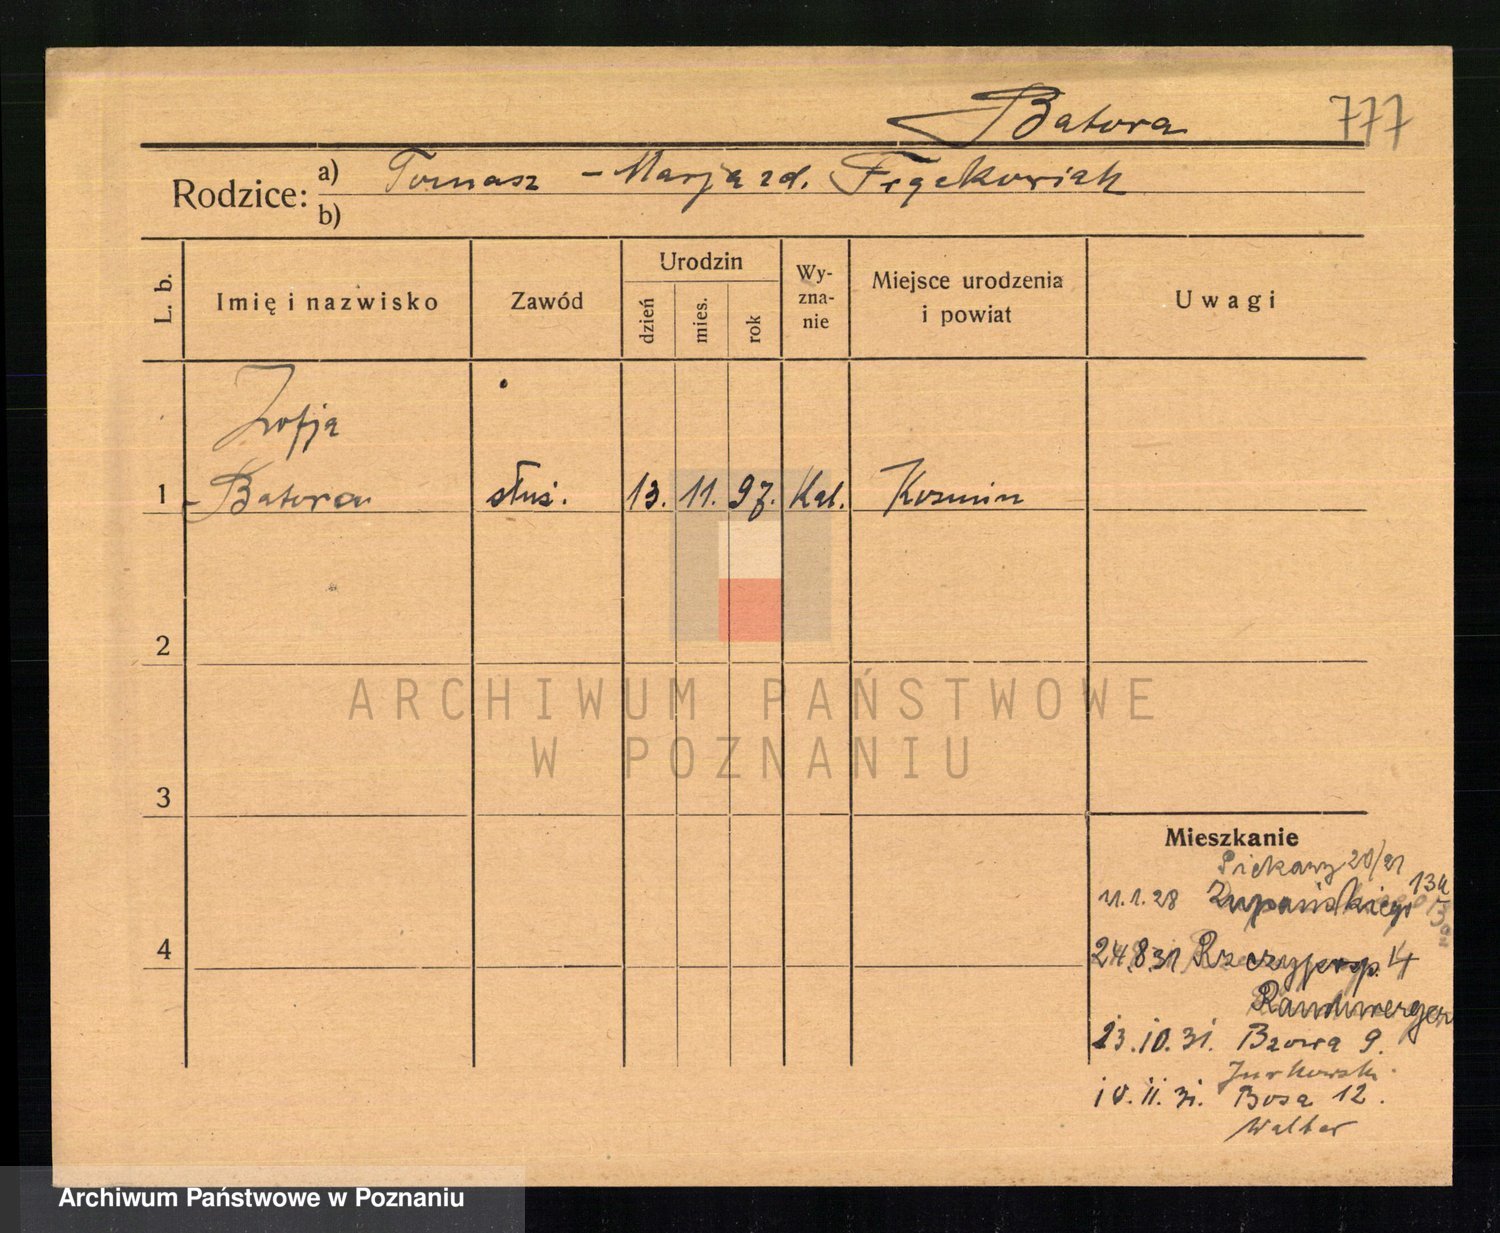 Batora 777
Rodzice: a) Tomasz - Marja zd. Frąckowiak
b)
L. b. Imię i nazwisko Zawód Urodzin dzień mies. rok Wy-zna-nie Miejsce urodzenia i powiat Uwagi
Zofja
1 Batora służ. 13. 11. 97. Kat. Kozmin
2
ARCHIWUM PAŃSTWOWE
W POZNANIU
3
Mieszkanie
Piekary 20/21
11.1.28 Żupańskiego 13a
4
24.8.31 Rzeczyposp. 4
23.10.31. Bzowa 9.
Jurkowski
10.11.31. Bosa 12.
Walter
Archiwum Państwowe w Poznaniu